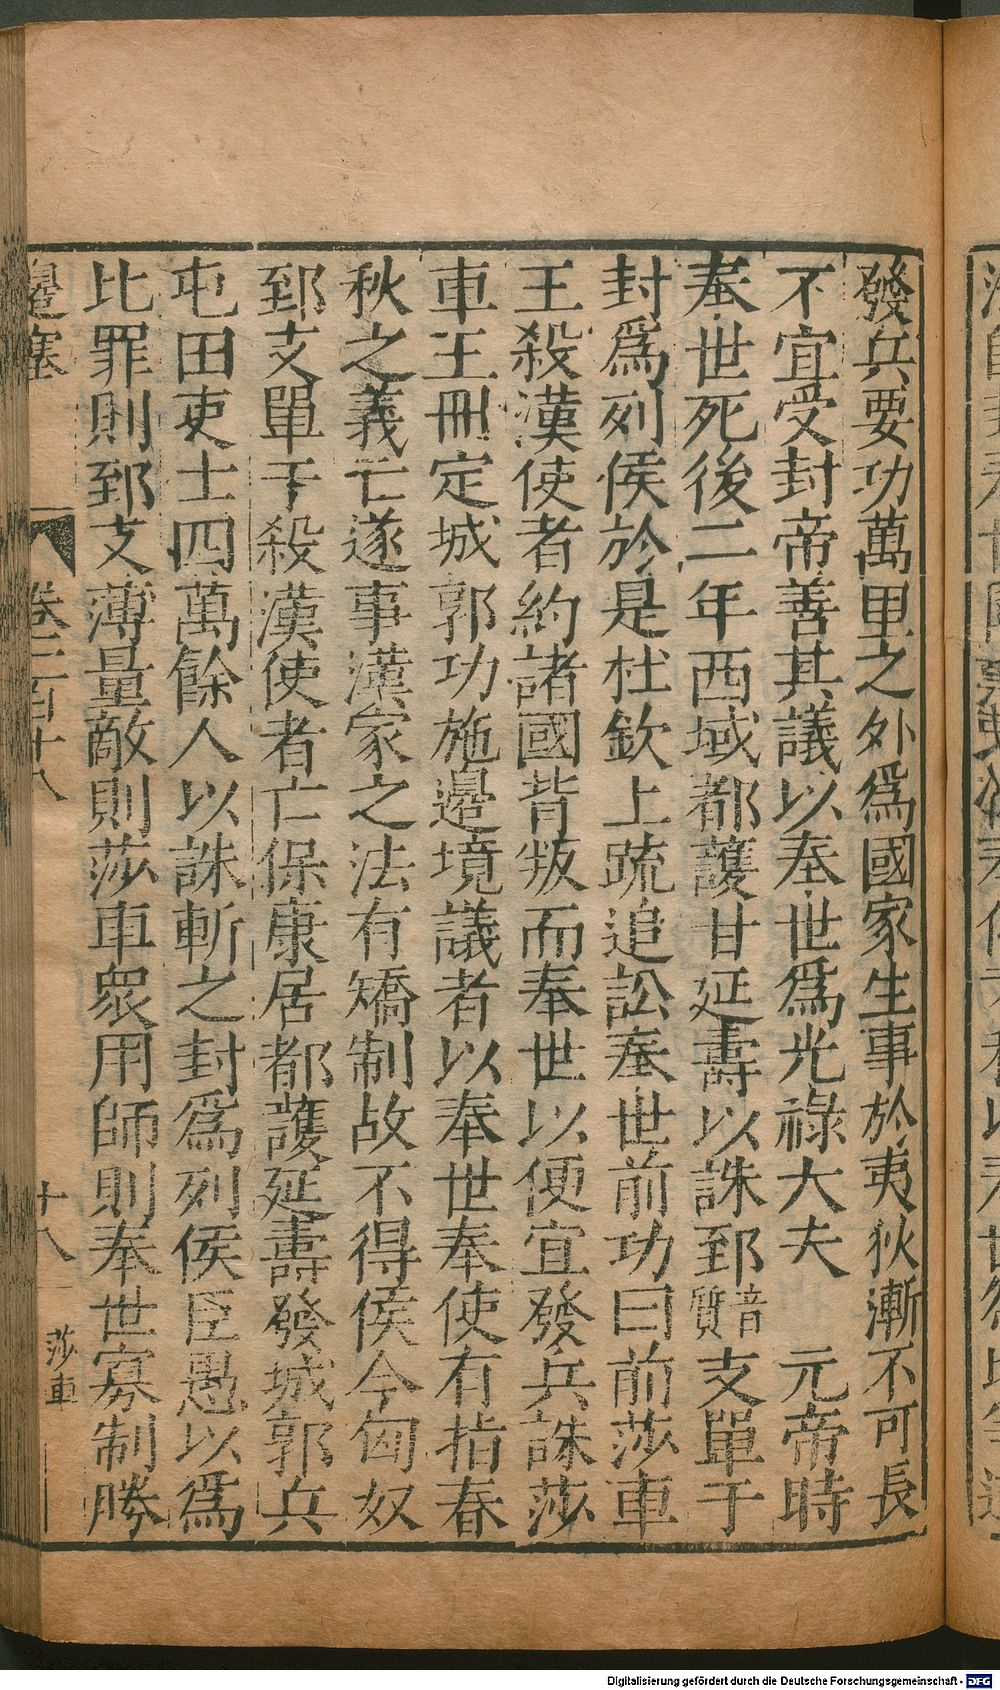 發兵要功萬里之外爲國家生事於夷狄漸不可長
不宜受封帝善其議以奉世爲光祿大夫　元帝時
奉世死後二年西域都護甘延壽以誅郅音質支單于
封爲列侯於是杜欽上疏追訟奉世前功曰前莎車
王殺漢使者約諸國背叛而奉世以便宜發兵誅莎
車王冊定城郭功施邊境議者以奉世奉使有指春
秋之義亡遂事漢家之法有矯制故不得侯今匈奴
郅支單于殺漢使者亡保康居都護延壽發城郭兵
屯田吏士四萬餘人以誅斬之封爲列侯臣愚以爲
比罪則郅支薄量敵則莎車衆用師則奉世寡制勝
邊塞　卷二百十八　十八　莎車
Digitalisierung gefördert durch die Deutsche Forschungsgemeinschaft - DFG